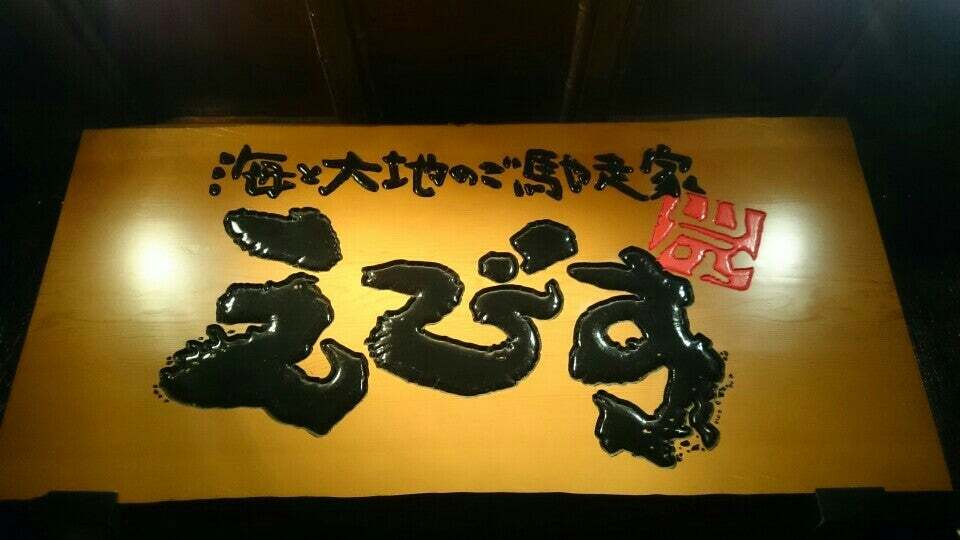 海と大地のご馳走家
えびす